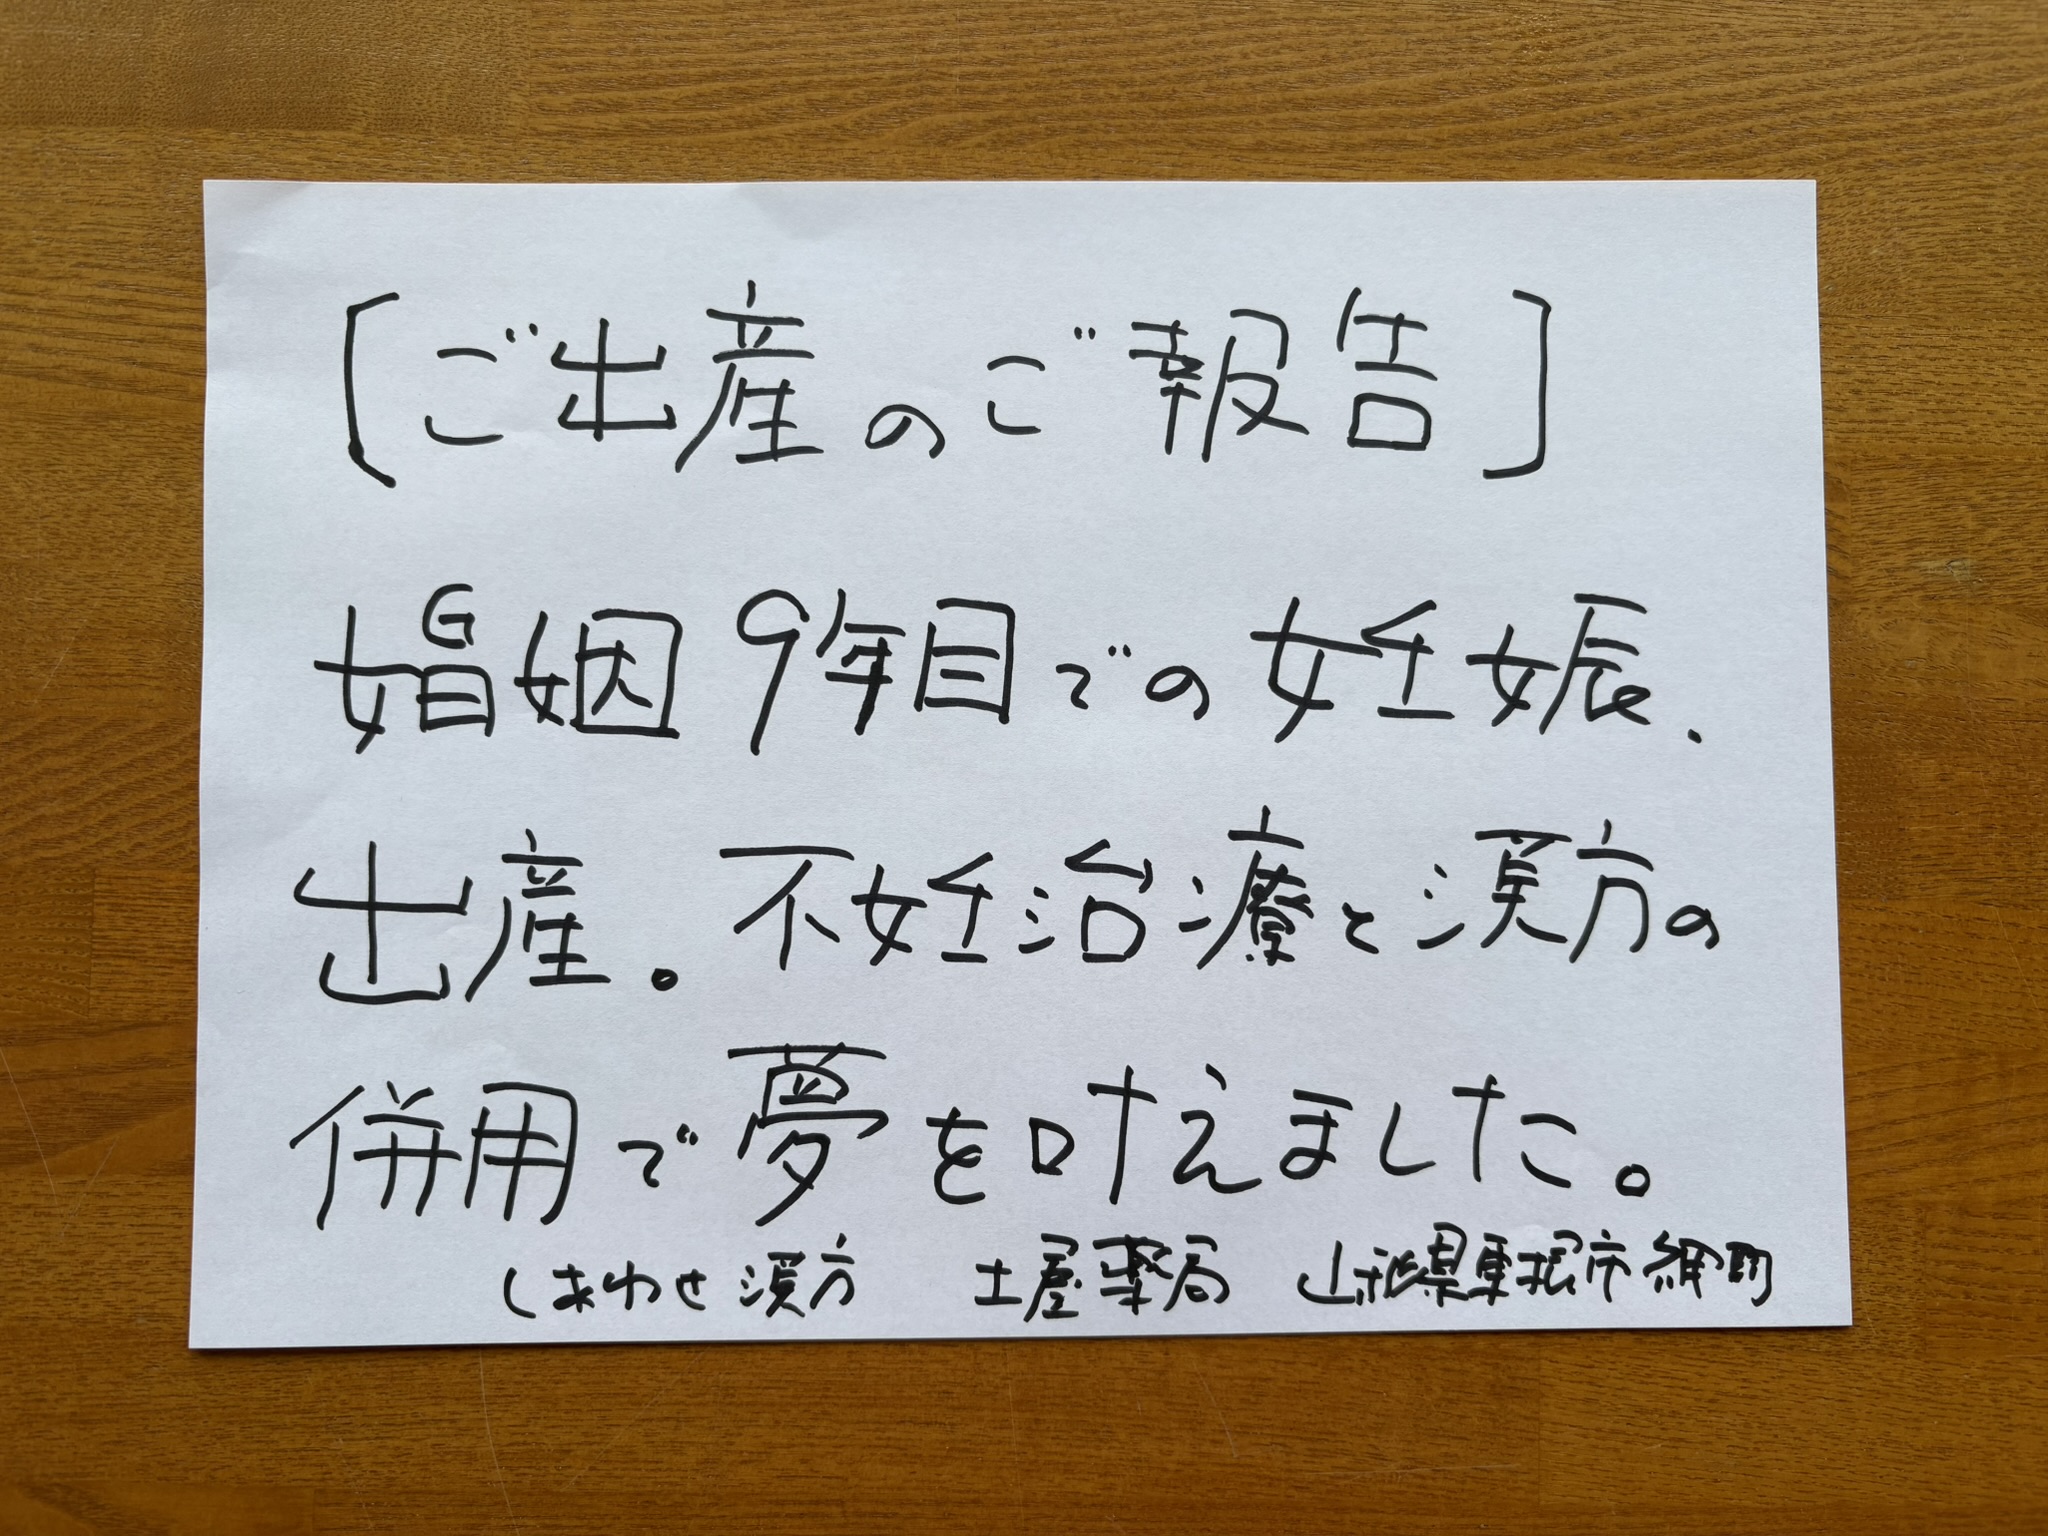 [ご出産のご報告]
婚姻9年目での妊娠、
出産。不妊治療と漢方の
併用で夢を叶えました。
しあわせ漢方 土屋薬局 山形県東根市